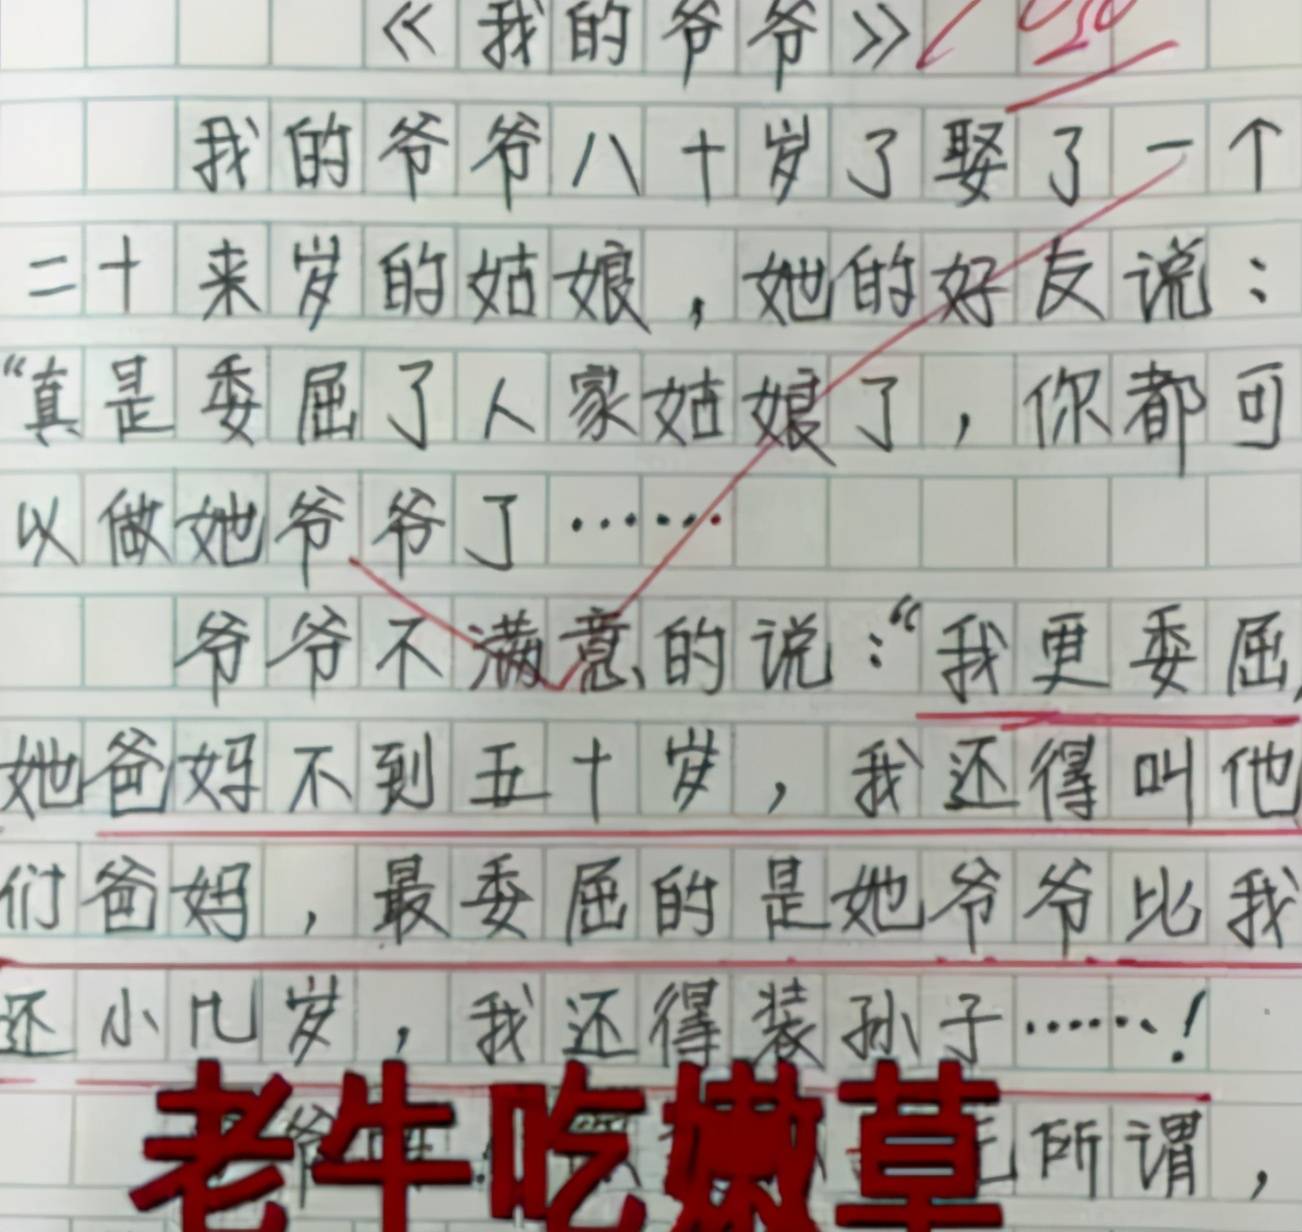 《我的爷爷》
我的爷爷八十岁了娶了一个
二十来岁的姑娘，她的好友说：
“真是委屈了人家姑娘了，你都可
以做她爷爷了……
爷爷不满意的说：“我更委屈，
她爸妈不到五十岁，我还得叫他
们爸妈，最委屈的是她爷爷比我
还小几岁，我还得装孙子……！
所谓，
老牛吃嫩草